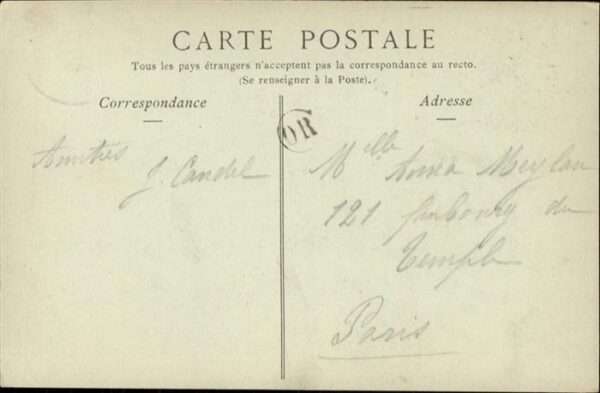 CARTE POSTALE
Tous les pays étrangers n'acceptent pas la correspondance au recto.
(Se renseigner à la Poste).
Correspondance
Adresse
OR
Amitiés
J. Candel
Mlle Anna Meylan
121 faubourg du
Temple
Paris